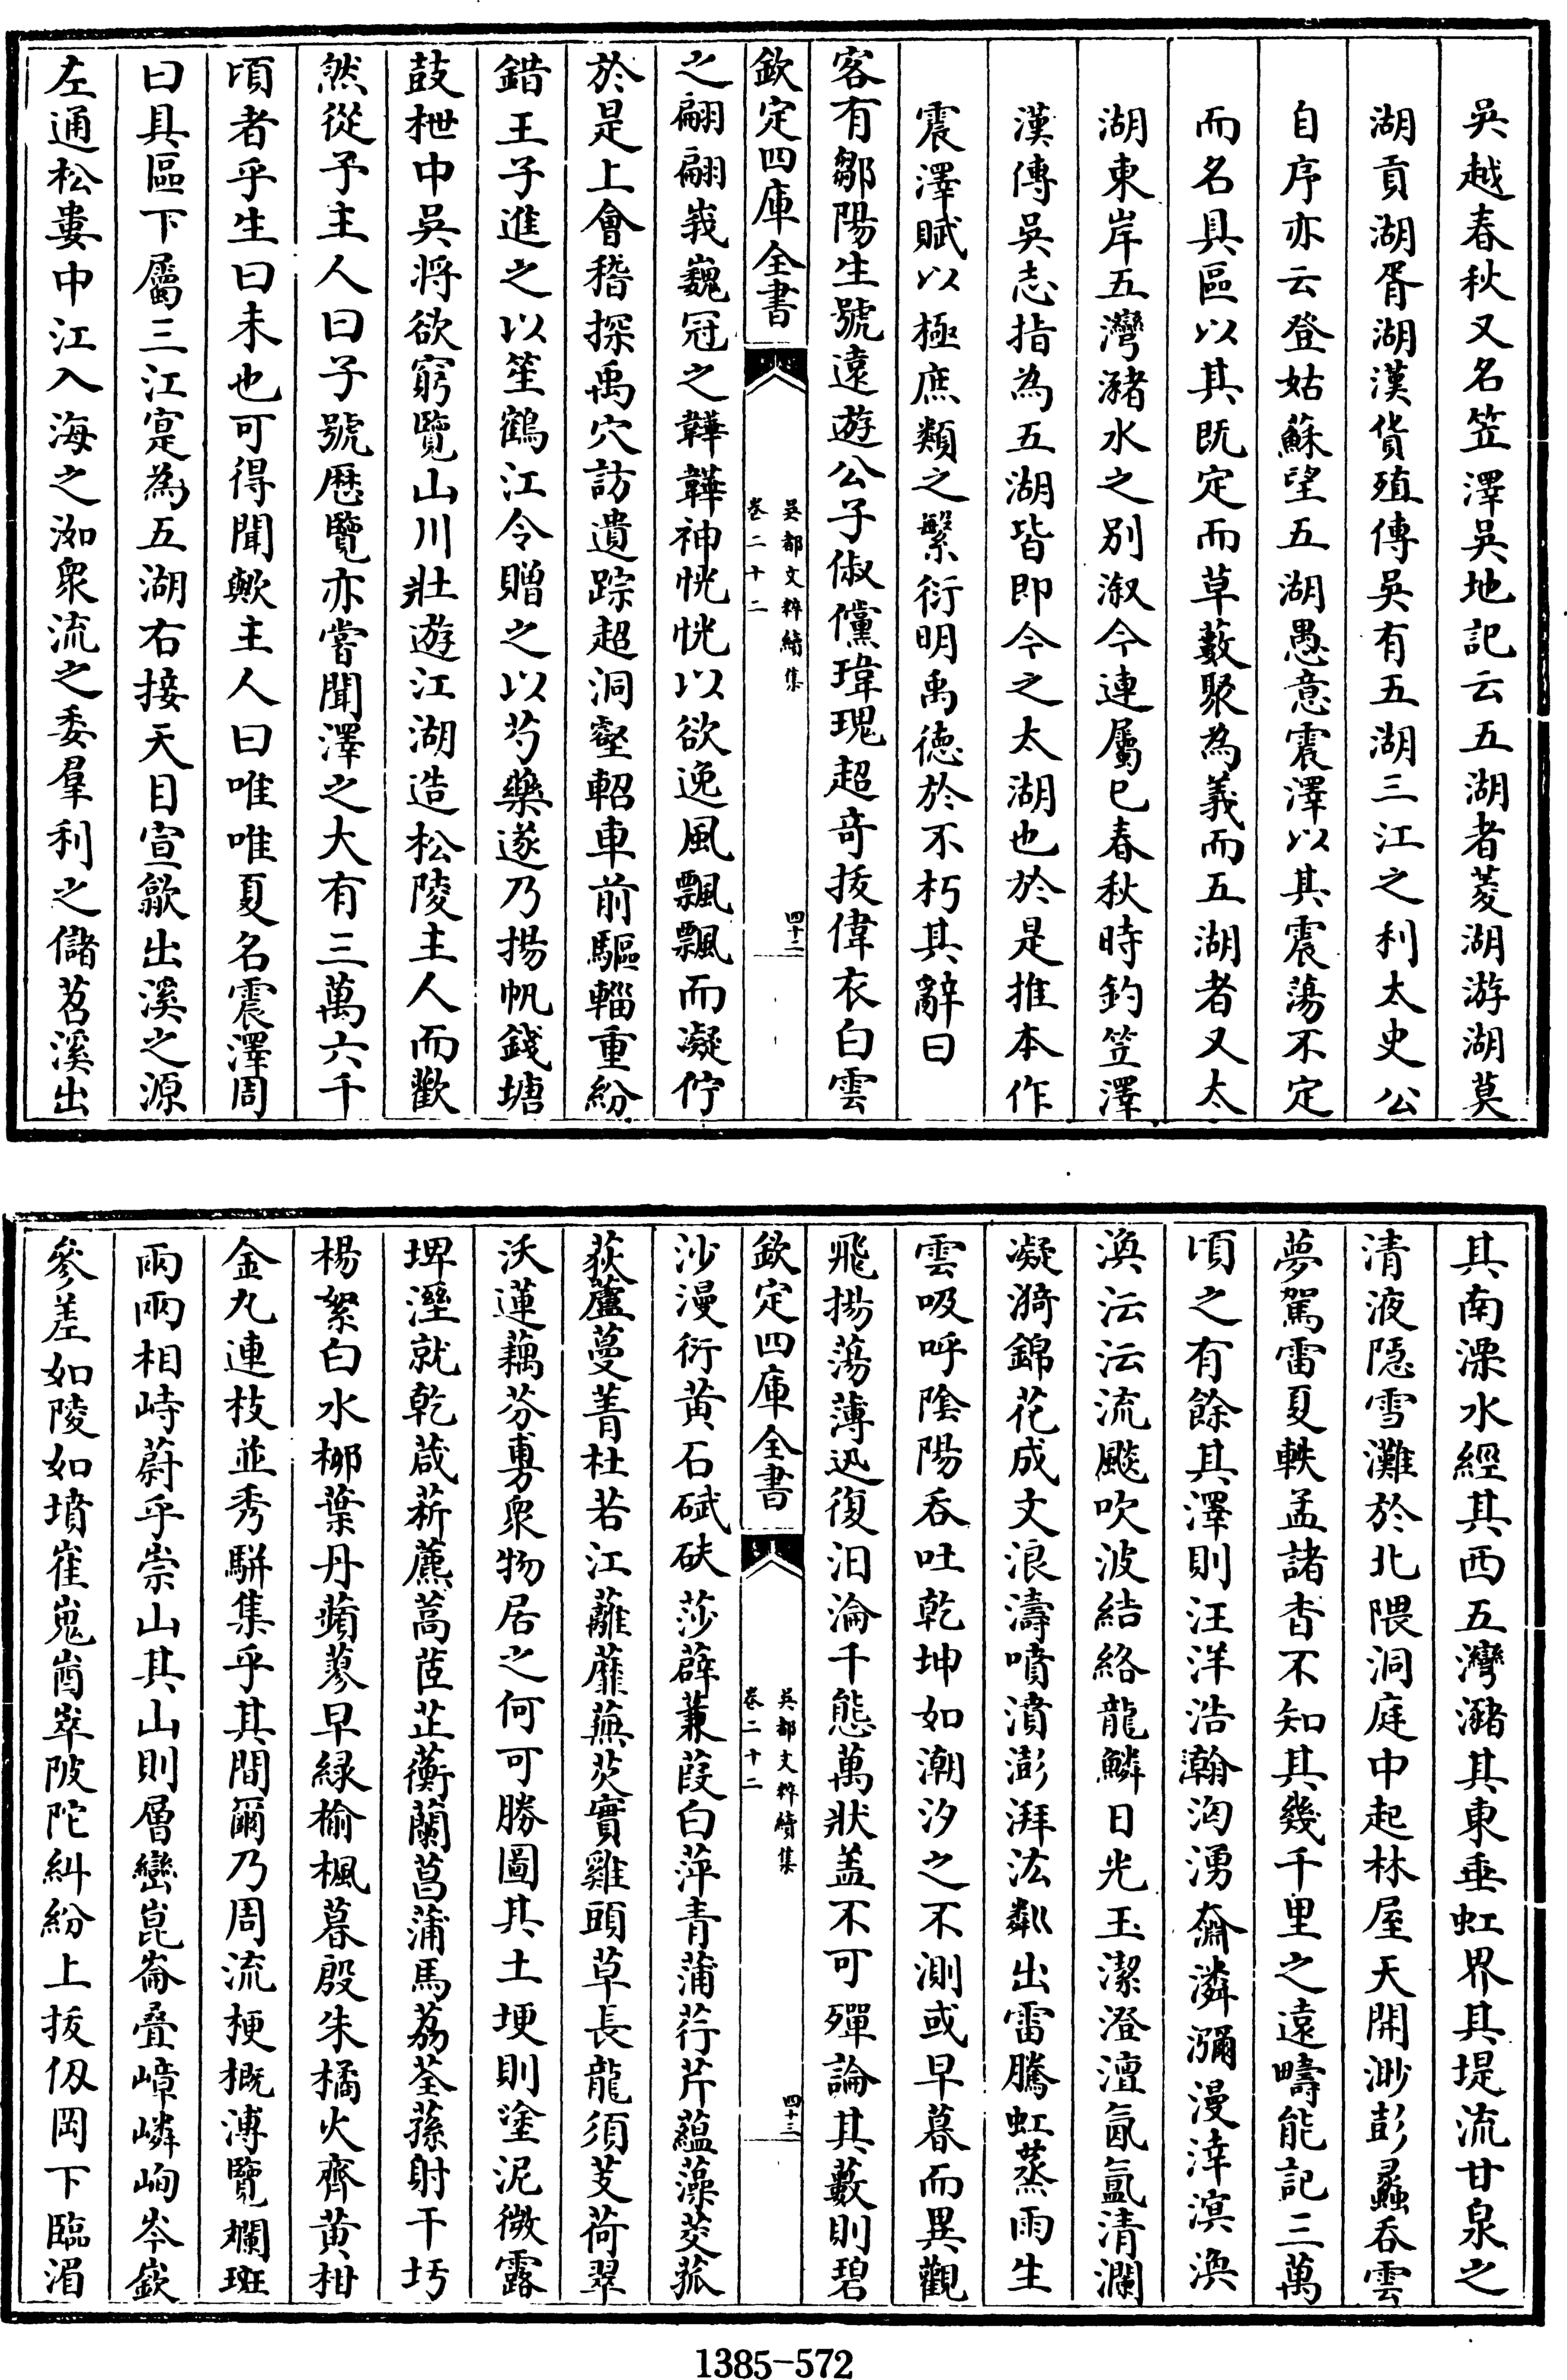 吳越春秋又名笠澤吳地記云五湖者菱湖游湖莫
湖貢湖胥湖漢貨殖傳吳有五湖三江之利太史公
自序亦云登姑蘇望五湖愚意震澤以其震蕩不定
而名具區以其既定而草藪聚為義而五湖者又太
湖東岸五灣瀦水之別漵今連屬已春秋時釣笠澤
漢傳吳志指為五湖皆即今之太湖也於是推本作
震澤賦以極庶類之繄衍明禹德於不朽其辭曰
客有鄒陽生號遠遊公子俶儻瑋瑰超奇拔偉衣白雲
欽定四庫全書
吳都文粹續集
卷二十二
四十二
之翩翩峩巍冠之韡韡神恍恍以欲逸風飄飄而凝佇
於是上會稽探禹穴訪遺踪超洞壑軺車前驅輜重紛
錯王子進之以笙鶴江令贈之以芍藥遂乃揚帆錢塘
鼓枻中吳將欲窮覽山川壯遊江湖造松陵主人而歡
然從予主人曰子號歷覽亦嘗聞澤之大有三萬六千
頃者乎生曰未也可得聞歟主人曰唯唯夏名震澤周
曰具區下屬三江寔為五湖右接天目宣歙出溪之源
左通松婁中江入海之洳衆流之委羣利之儲苕溪出
其南溧水經其西五灣瀦其東垂虹界其堤流甘泉之
清液隱雪灘於北隈洞庭中起林屋天開渺彭蠡吞雲
夢駕雷夏軼孟諸杳不知其幾千里之遠疇能記三萬
頃之有餘其澤則汪洋浩瀚洶湧奫潾瀰漫涬溟渙
渙沄沄流颷吹波結絡龍鱗日光玉潔澄澶氤氳清瀾
凝漪錦花成文浪濤噴濆澎湃汯粼出雷騰虹蒸雨生
雲吸呼陰陽吞吐乾坤如潮汐之不測或早暮而異觀
飛揚蕩薄迅復汨淪千態萬狀盖不可殫論其藪則碧
欽定四庫全書
吳都文粹續集
卷二十二
四十三
沙漫衍黃石碔砆莎薜蒹葭白萍青蒲荇芹蘊藻茭菰
荻蘆蔓菁杜若江蘺蘼蕪芡實雞頭草長龍須芰荷翠
沃蓮藕芬旉衆物居之何可勝圖其土埂則塗泥微露
埤溼就乾葴菥藨蒿茝芷蘅蘭菖蒲馬荔荃蓀射干圬
楊絮白水栁葉丹蘋蓼早緑榆楓暮殷朱橘火齊黃柑
金丸連枝並秀駢集乎其間爾乃周流梗概溥覽斕斑
兩兩相峙蔚乎崇山其山則層巒崑崙疊嶂嶙峋岑嶔
參差如陵如墳崔嵬崷崒陂陀糾紛上拔仭岡下臨湄
1385-572